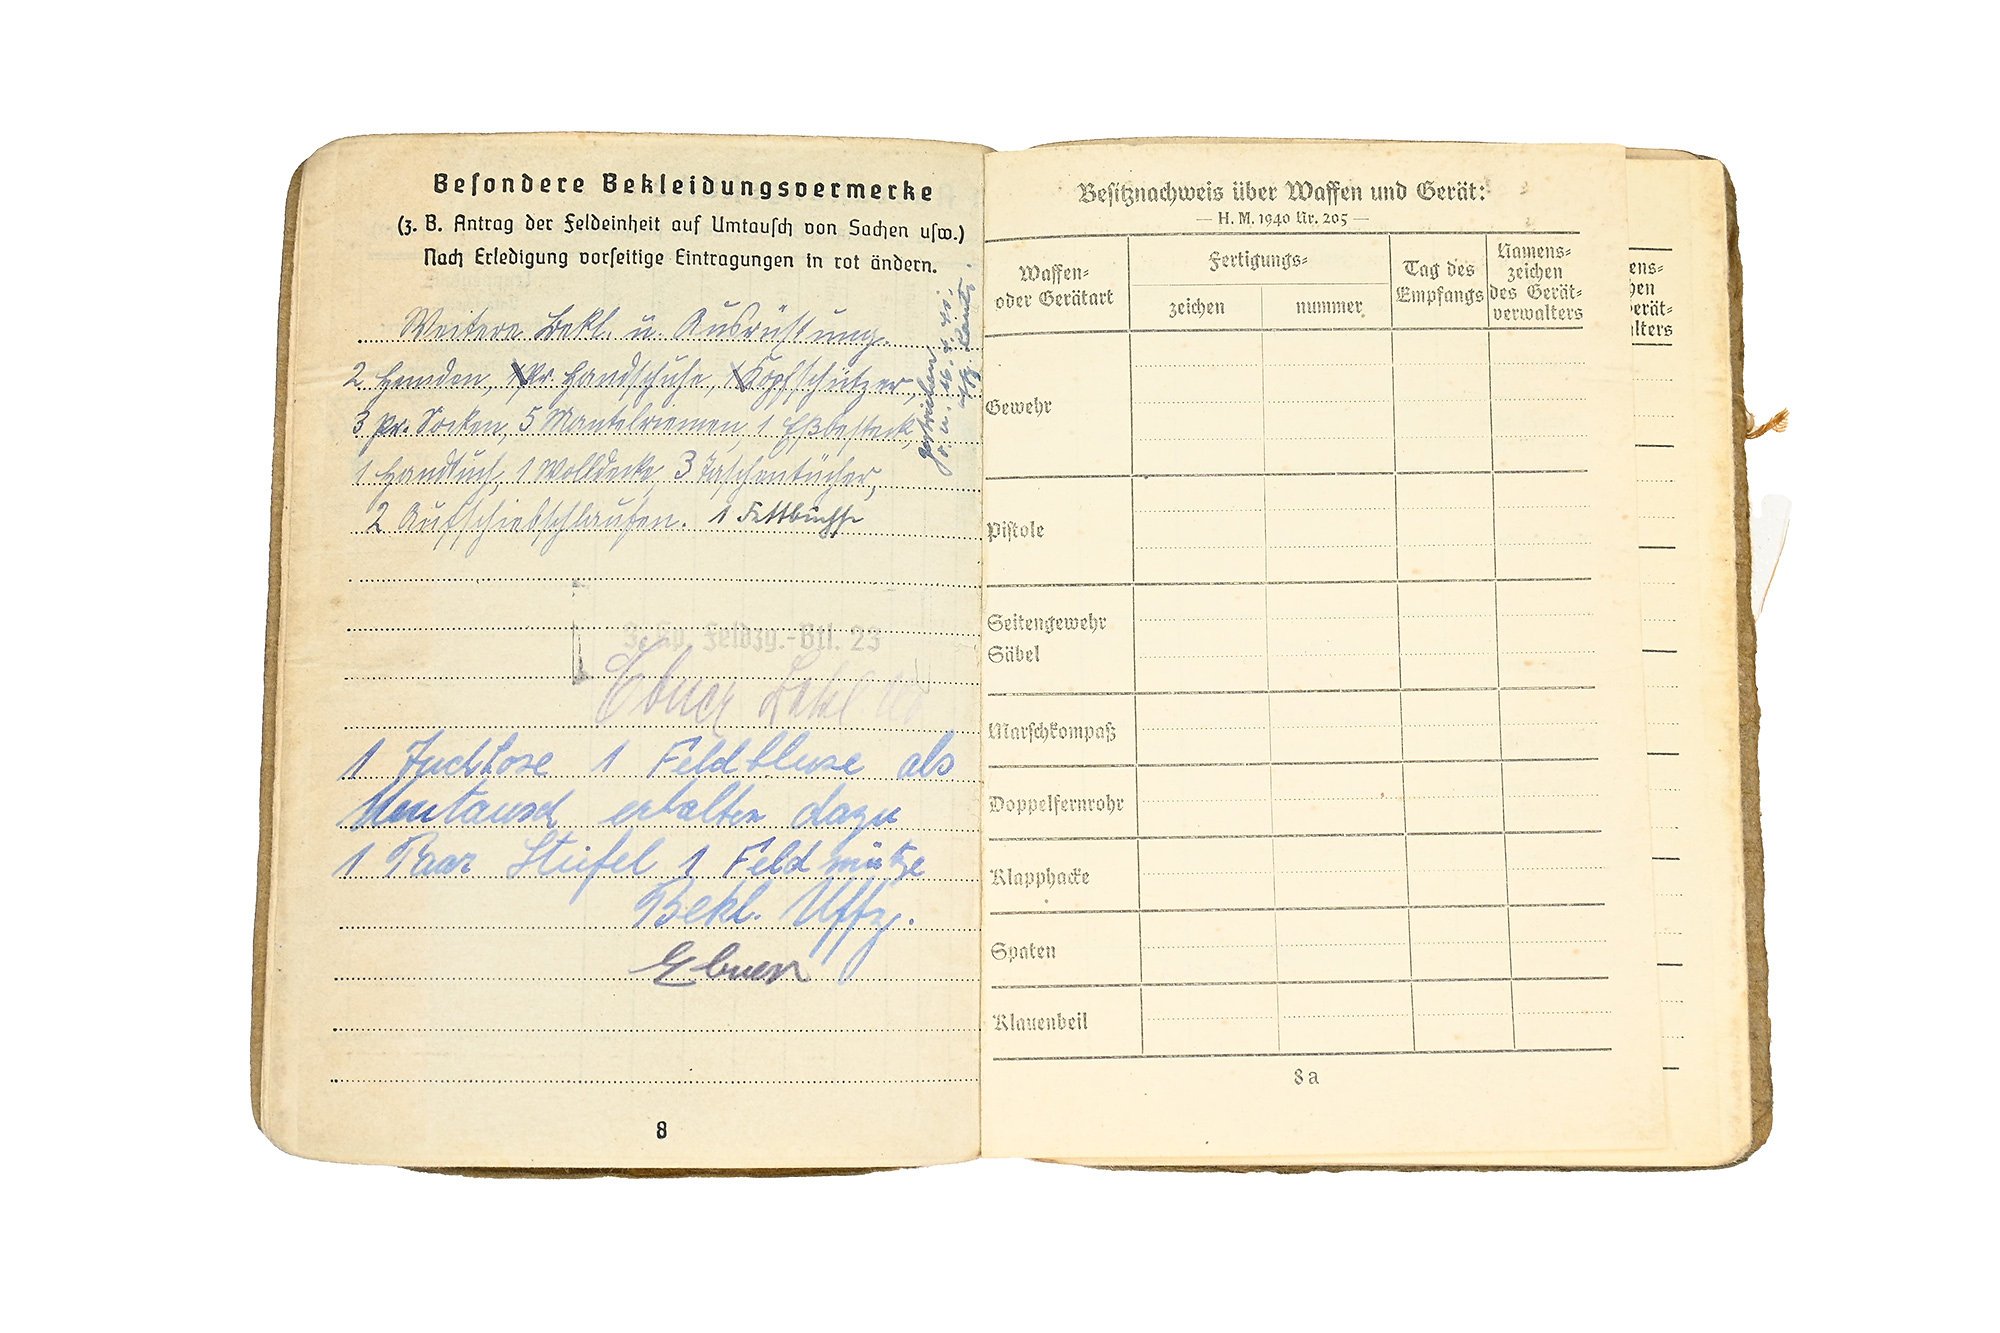 Besondere Bekleidungsvermerke
(z. B. Antrag der Feldeinheit auf Umtausch von Sachen usw.)
Nach Erledigung vorseitige Eintragungen in rot ändern.
Weitere Bekl. u. Ausrüstung.
2 Hemden, 1 Pr. Handschuhe, 1 Kopfschützer,
3 Pr. Socken, 5 Mantelriemen, 1 Eßbesteck,
1 Handtuch, 1 Wolldecke, 3 Taschentücher,
2 Aufschiebschlaufen. 1 Fettbüchse
gestrichen
3. Kp. Feldzg.-Btl. 23
Ebner
1 Tuchhose 1 Feldbluse als
Umtausch erhalten dazu
1 Paar Stiefel 1 Feldmütze
Bekl. Uffz.
Ebner
8
Besitznachweis über Waffen und Gerät:
— H. M. 1940 Nr. 205 —
Waffen-
oder Gerätart
Fertigungs-
zeichen
nummer
Tag des
Empfangs
Namens-
zeichen
des Gerät-
verwalters
Gewehr
Pistole
Seitengewehr
Säbel
Marschkompaß
Doppelfernrohr
Klapphacke
Spaten
Klauenbeil
8a
ens-
hen
erät-
lters